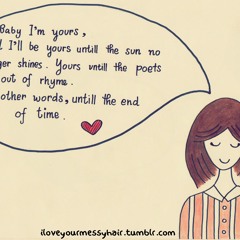 Baby I'm yours,
I'll be yours untill the sun no
shines. Yours untill the poets
out of rhyme.
other words, untill the end
of time.
iloveyourmessyhair.tumblr.com